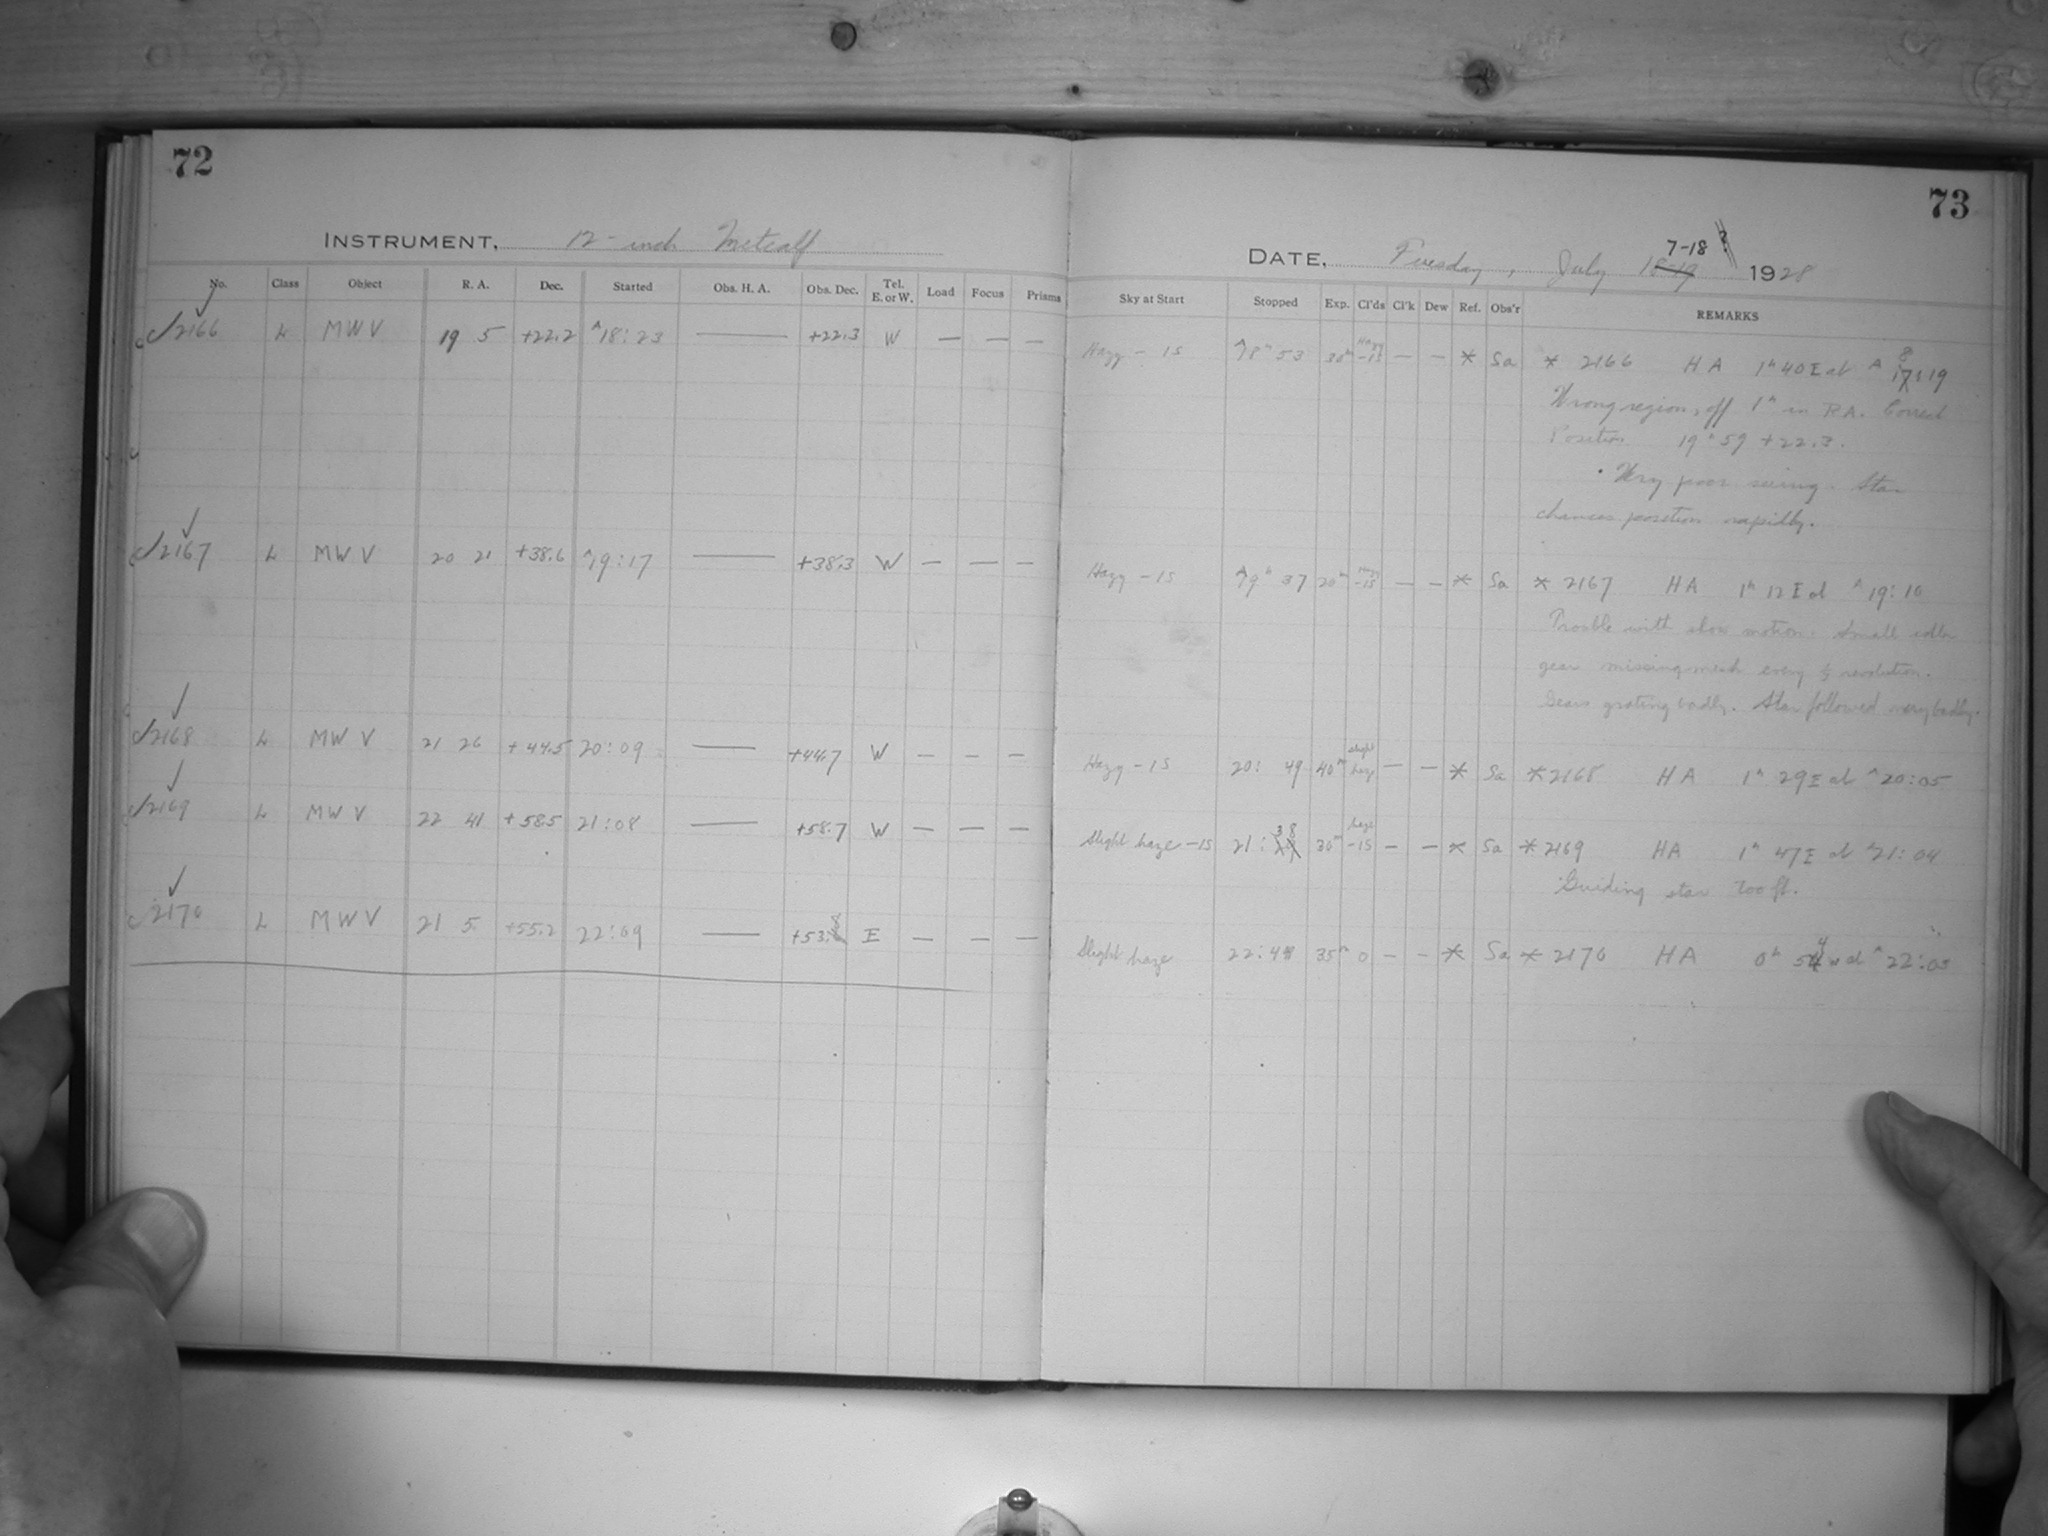 72
INSTRUMENT, 12-inch Metcalf
No. Class Object R. A. Dec. Started Obs. H. A. Obs. Dec. Tel. E. or W. Load Focus Prisms
2166 L MWV 19 5 +22.2 18:23 — +22.3 W — — —
2167 L MWV 20 21 +38.6 19:17 — +38.3 W — — —
2168 L MWV 21 26 +44.5 20:09 — +44.7 W — — —
2169 L MWV 22 41 +58.5 21:08 — +58.7 W — — —
2170 L MWV 21 5 +55.2 22:09 — +53.8 E — — —
73
DATE, Tuesday, July 18-19 7-18 ? 1928
Sky at Start Stopped Exp. Cl'ds Cl'k Dew Ref. Obs'r REMARKS
Hazy - 15 18h 53 30m Hazy -15 — — * Sa * 2166 HA 1h 40 E at 18:19
Wrong region, off 1h in RA. Correct
Position 19h 59 +22.3.
Very poor seeing. Star
chances position rapidly.
Hazy - 15 19h 37 20m Hazy -15 — — * Sa * 2167 HA 1h 12 E at 19:10
Trouble with slow motion. Small idler
gear missing mesh every ½ revolution.
Gears grating badly. Star followed very badly.
Hazy - 15 20: 49 40m slight haze — — * Sa * 2168 HA 1h 29 E at 20:05
Slight haze - 15 21:38 30m haze -15 — — * Sa * 2169 HA 1h 47 E at 21:04
Guiding star too ft.
Slight haze 22:44 35m 0 — — * Sa * 2170 HA 0h 54 w at 22:05